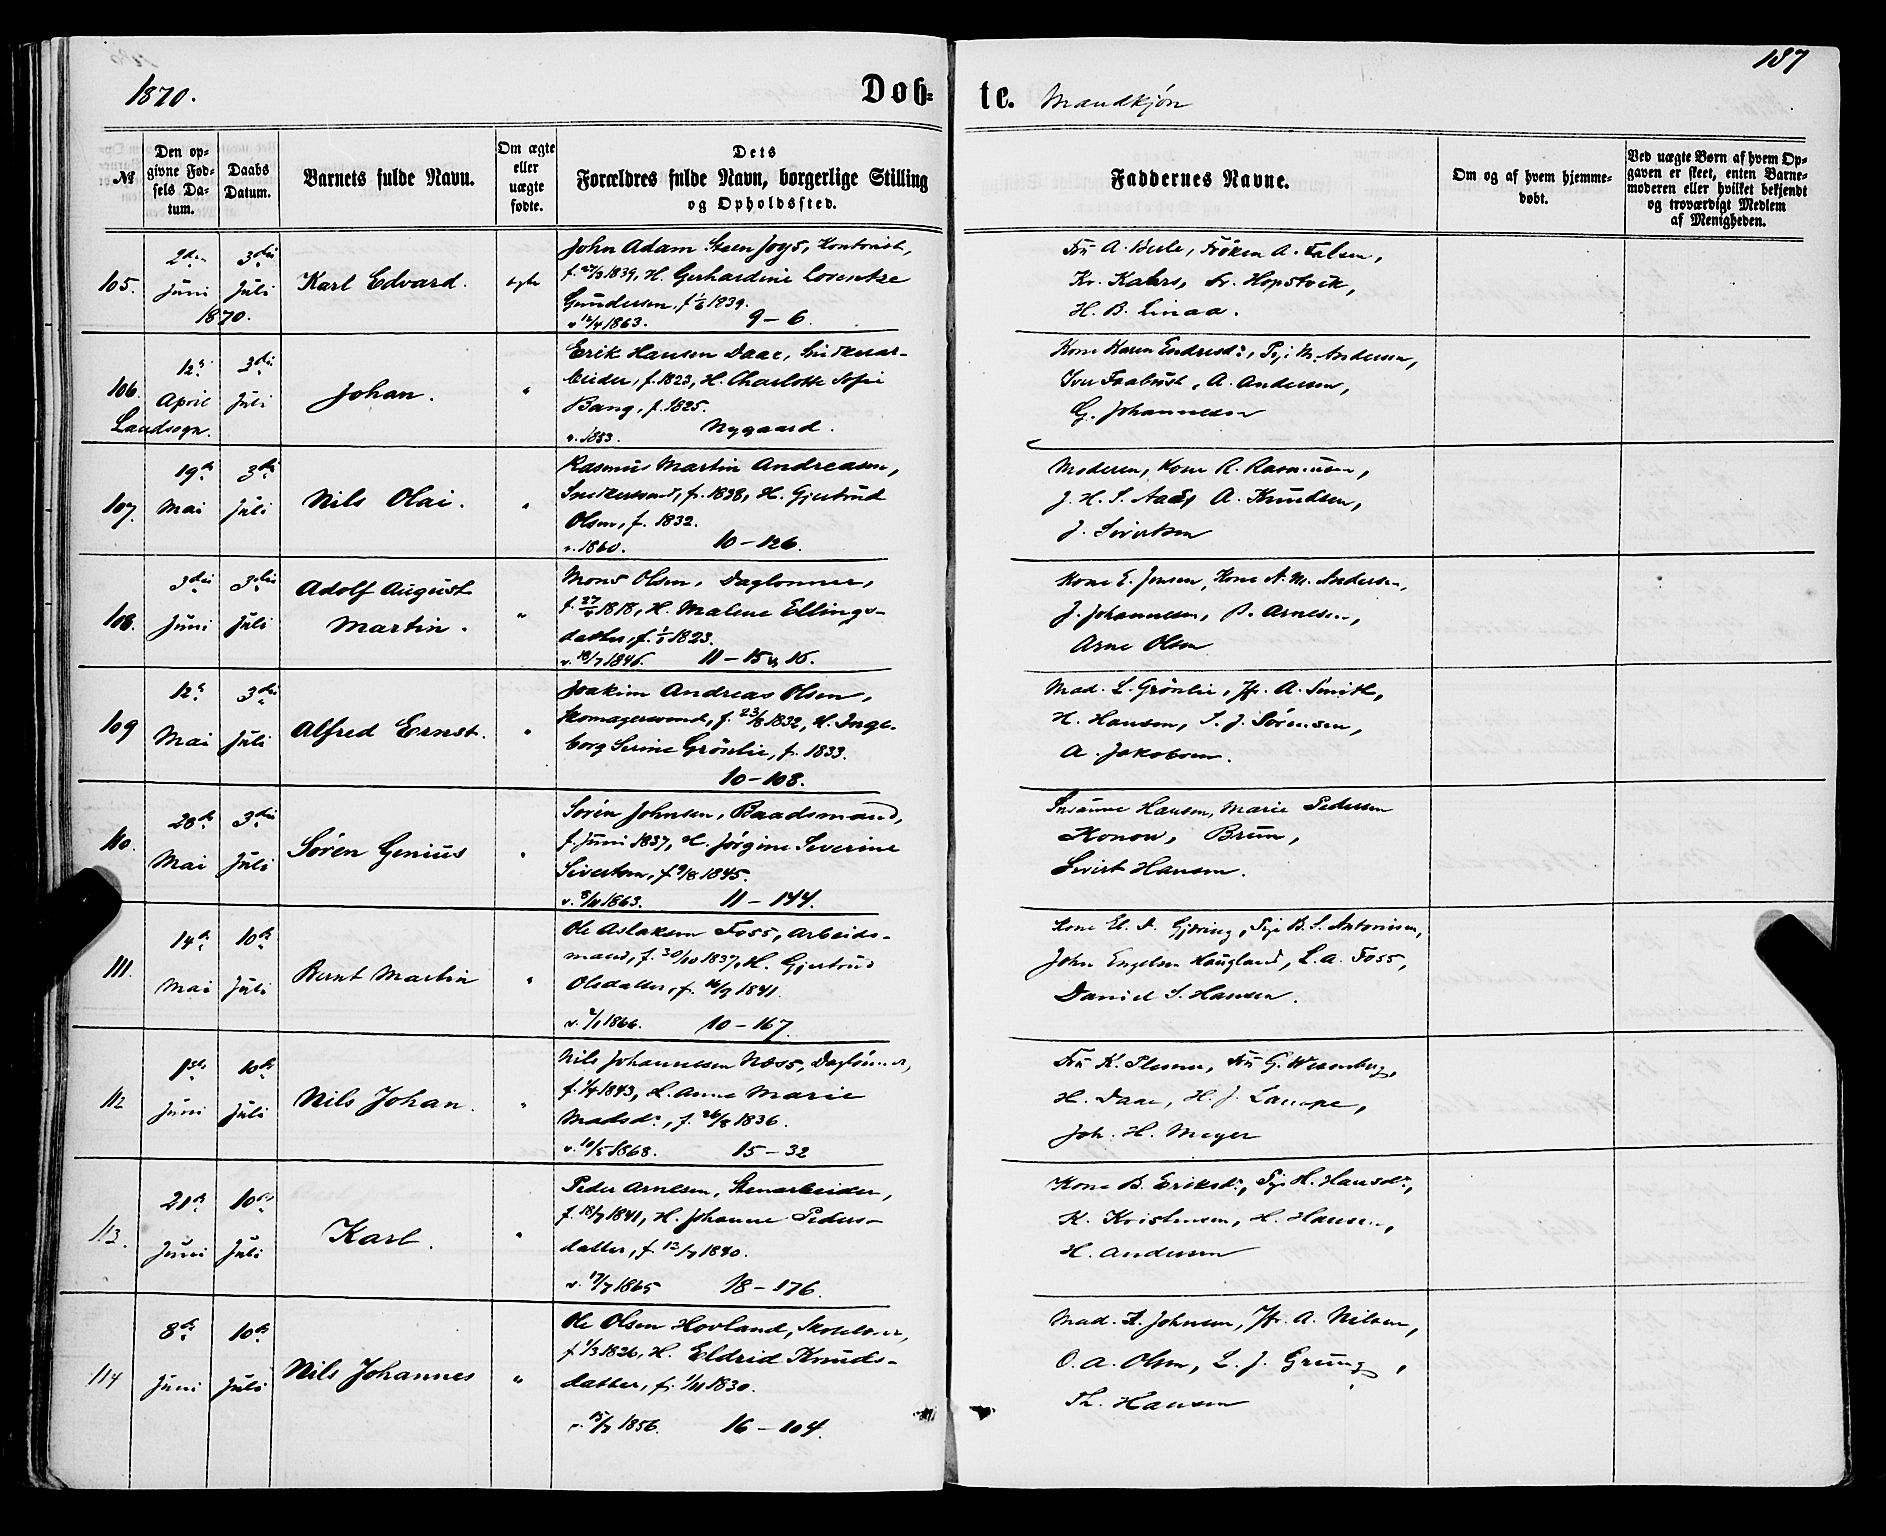 187
1870.
Døb-
te. Mandkjøn
№
Den op-
givne Fød-
sels Da-
tum.
Daabs
Datum.
Barnets fulde Navn.
Om ægte
eller
uægte
fødte.
Dets
Forældres fulde Navn, borgerlige Stilling
og Opholdssted.
Faddernes Navne.
Om og af hvem hjemme-
døbt.
Ved uægte Børn af hvem Op-
gaven er skeet, enten Barne-
moderen eller hvilket bekjendt
og troværdigt Medlem
af Menigheden.
105.
2den
Juni
1870.
3die
Juli
Karl Edvard.
ægte
John Adam Steen Joys, Kontorist,
1839, H. Gerhardine Lorentze
Gundersen, 1839.
1863. 9-6.
Frü A. Frøken A. Falsen,
Kr. Kahrs, Fr. Hopstock,
H. B. Linaa.
106.
Landsogn.
12
April
3die
Juli
Johan.
"
Erik Hansen Daae,
f. 1823, H. Charlotte Sofie
Bang, f. 1825.
v. 1853. Nygaard.
Kone Karen Endresdr, Pige M. Andersen,
Iver A. Andersen,
G. Johannesen
107.
19de
Mai
3die
Juli
Nils Olai.
"
Rasmus Martin Andreasen,
Snedkersvend, f. 1838, H. Gjertrud
Olsen, f. 1832.
v. 1860. 10-126.
Moderen, Kone R. Rasmussen,
J. H. S. A. Knudsen,
J. Sivertsen
108.
3die
Juni
3die
Juli
Adolf August
Martin.
"
Mons Olsen, Daglønner,
f. 1818, H. Malene Ellings-
datter, f. 1823.
v. 18/7 1846. 11-15 16.
Kone E. Jensen, Kone A. M. Andersen,
J. Johannesen, P. Arnesen,
Arne Olsen
109
12
Mai
3die
Juli
Alfred Ernst.
"
Joakim Andreas Olsen,
Skomagersvend, f. 23/8 1832, H. Inge-
borg Serine Grönlie, f. 1833.
10-108.
Mad. L. Grönlie, Jfr. A. Smith,
H. Hansen, S. J. Sörensen,
A. Jakobsen.
110.
20de
Mai
3die
Juli
Sören Genius
"
Sören Johnsen, Baadsmand,
f. Juni 1837, H. Jørgine Severine
Sivertsen, f. 9/8 1845.
v. 8/11 1863. 11-144.
Susanne Hansen, Marie Pedersen
Konow, Brun,
Sivert Hansen.
111.
14de
Mai
10de
Juli
Bernt Martin
"
Ole Aslaksen Foss, Arbeids-
mand, f. 30/10 1837, H. Gjertrud
Olsdatter, f. 16/9 1841.
v. 1866. 10-167.
Kone El. Gjøring, Pige B. S. Antonisen,
John Engelsen Haugland, L. A. Foss,
Daniel S. Hansen.
112
1ste
Juni
10de
Juli
Nils Johan.
"
Nils Johannesen Næss, Daglönner,
f. 1/4 1843, H. Anne Marie
Madsdr, f. 26/8 1836.
v. 10/5 1868. 15-32
Frü K. Plesner, Frü G. Wesenberg,
H. Daae, H. J. Lampe,
Joh. H. Meyer
113.
21de
Juni
10de
Juli
Karl.
"
Peder Arnesen, Stenarbeider,
f. 18/7 1841, H. Johanne Peders-
datter, f. 12/7 1840.
v. 17/7 1865 18-176.
Kone B. Eriksdr, Pige H. Hansdr,
K. Kristensen, H. Hansen,
H. Andersen
114
8de
Juni
10de
Juli
Nils Johannes
"
Ole Olsen Hovland,
f. 1/3 1826, H. Eldrid Knuds-
datter, f. 1/11 1830.
v. 15/7 1856. 16-104.
Mad. L. Johnsen, Jfr. A. Nilsen,
O. A. Olsen, L. J. Grung,
Th. Hansen